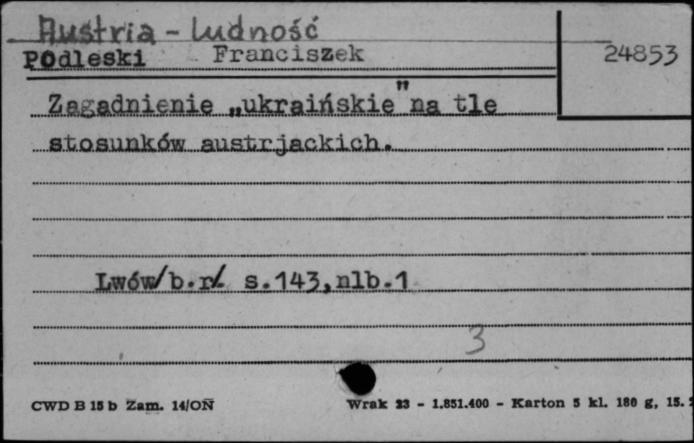 Austria - ludność
Podleski Franciszek 24853
Zagadnienie „ukraińskie" na tle
stosunków austrjackich.
Lwów/b.r/. s.143,nlb.1
3
CWD B 15 b Zam. 14/ON Wrak 23 - 1.851.400 - Karton 5 kl. 180 g, 15.